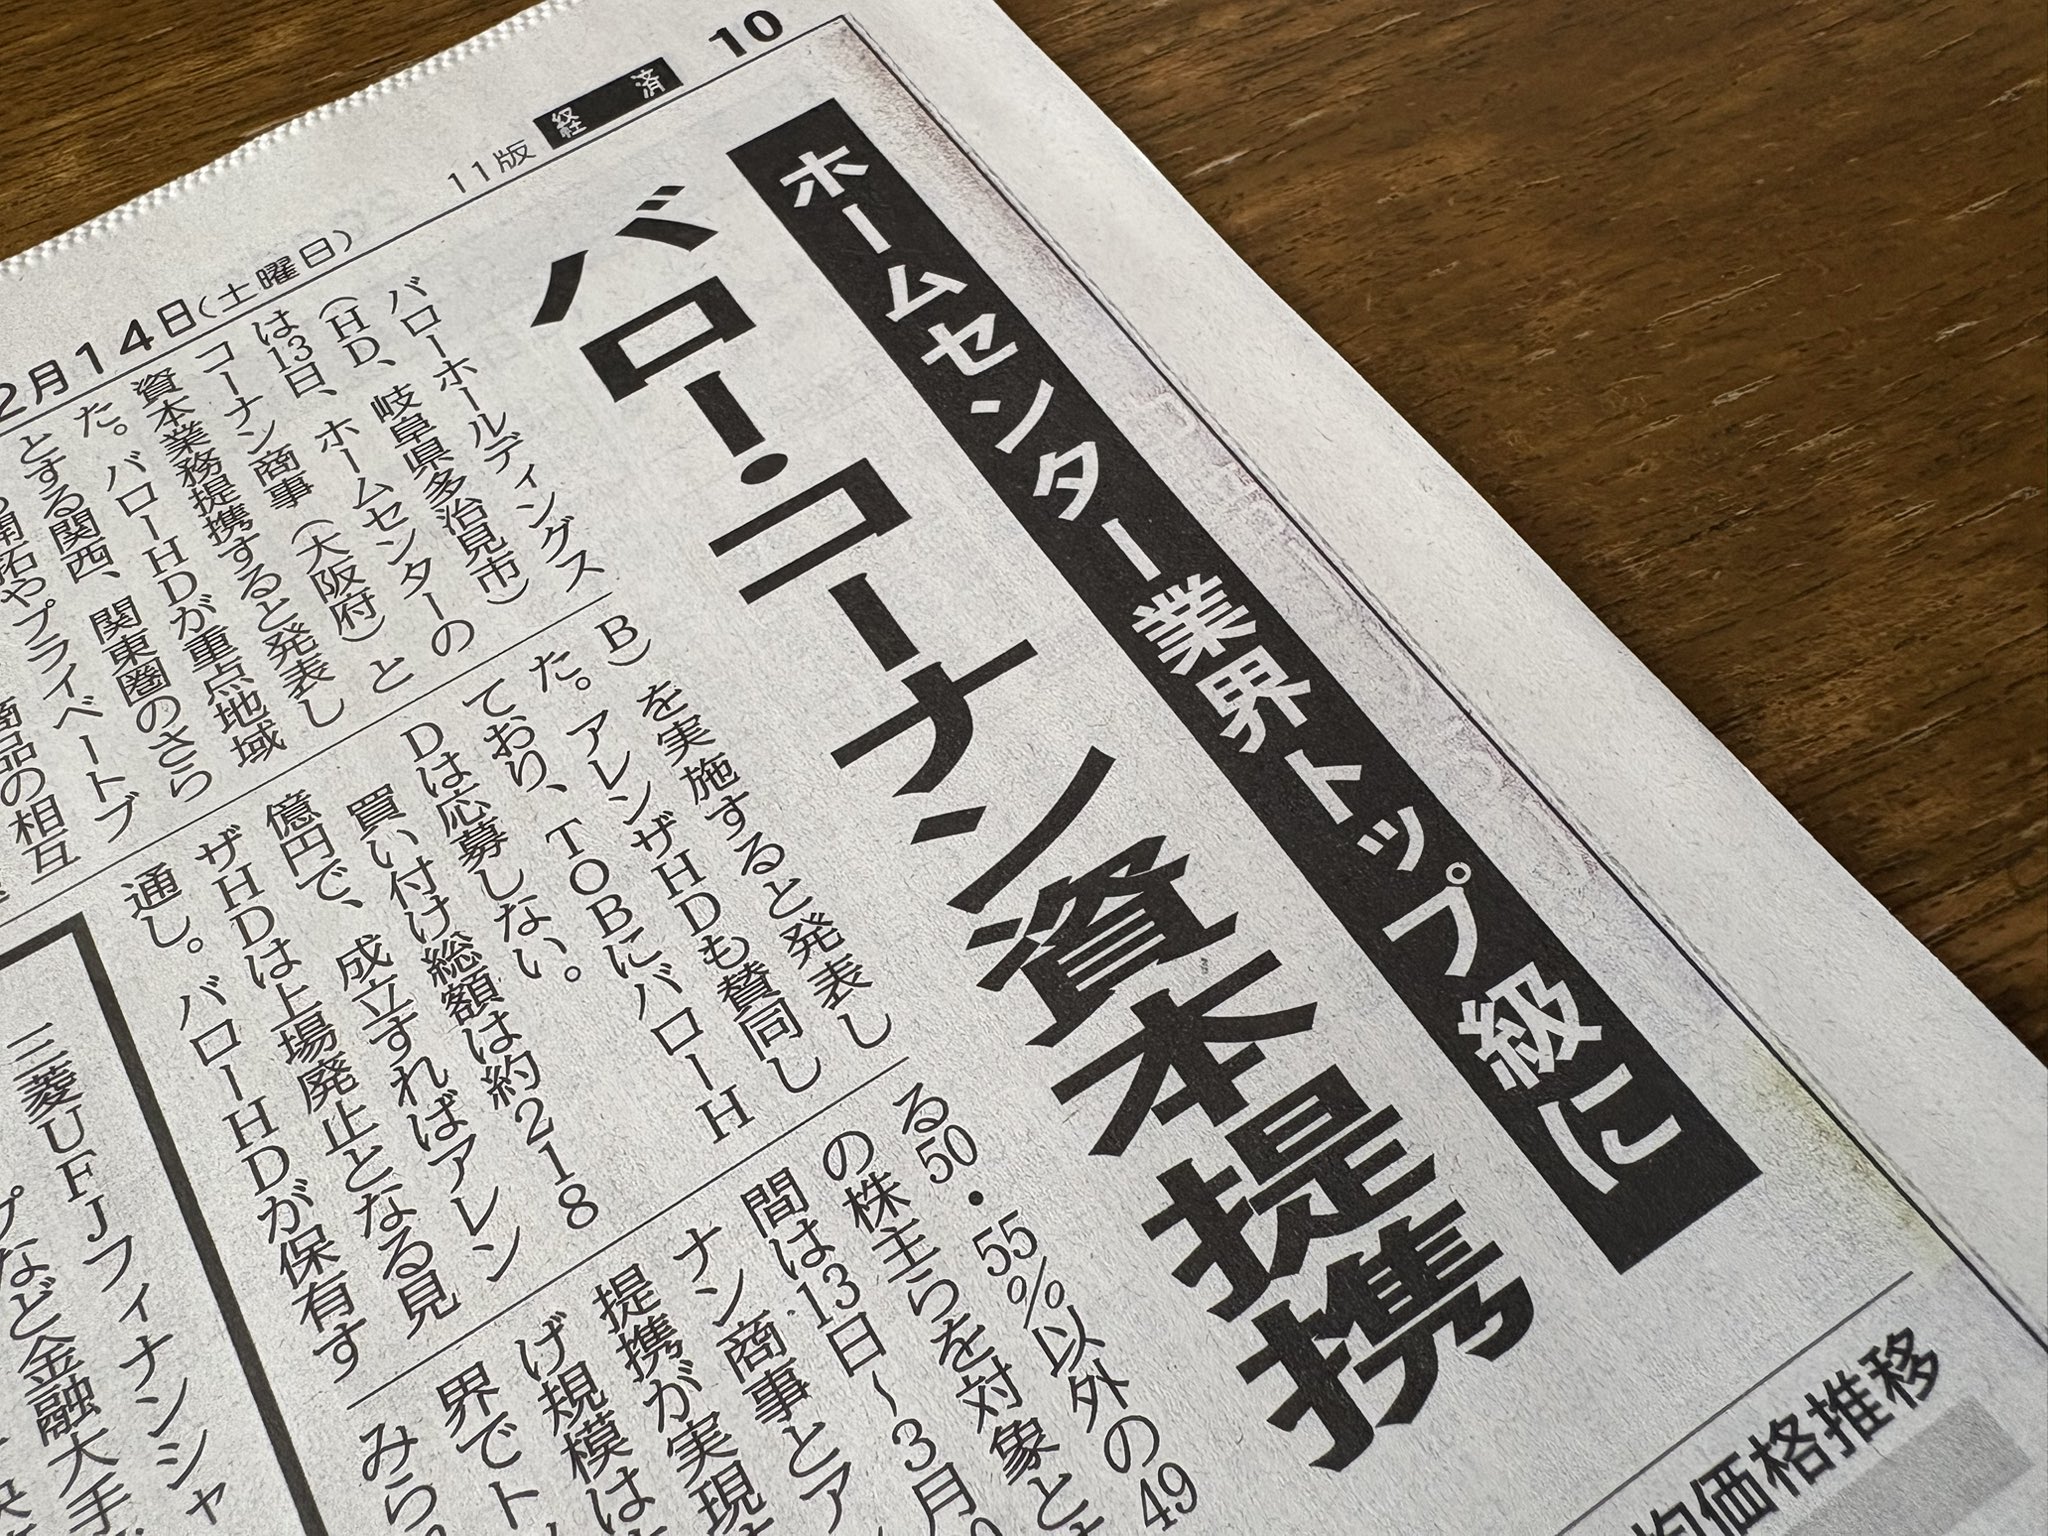 10
経済
11版
2月14日(土曜日)
ホームセンター業界トップ級に
バロー・コーナン資本提携
バローホールディングス
(HD、岐阜県多治見市)
は13日、ホームセンターの
コーナン商事(大阪府)と
資本業務提携すると発表し
た。バローHDが重点地域
とする関西、関東圏のさら
開拓やプライベートブ
商品の相互
B)を実施すると発表し
た。アレンザHDも賛同し
ており、TOBにバローH
Dは応募しない。
買い付け総額は約218
億円で、成立すればアレン
ザHDは上場廃止となる見
通し。バローHDが保有す
る50・55%以外の49
の株主らを対象と
間は13日~3月
ナン商事とア
提携が実現
げ規模は
界でト
みら
三菱UFJフィナンシャ
プなど金融大手
均価格推移